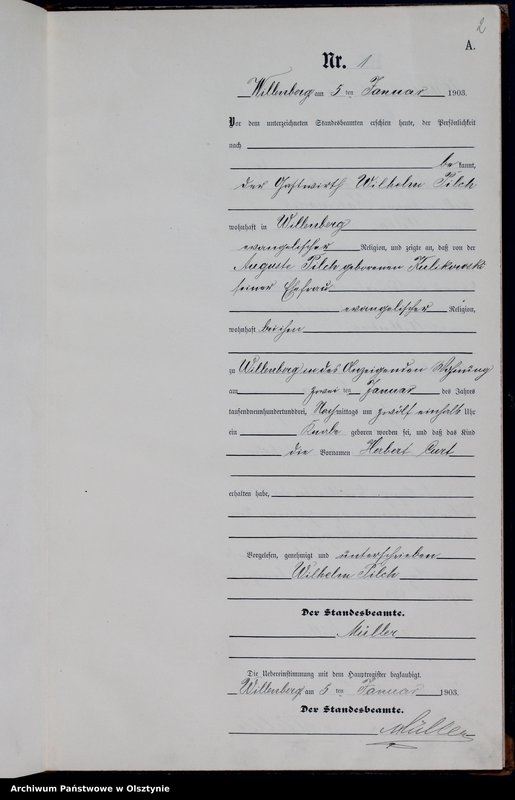 2
A.
Nr. 1
Willenberg am 5 ten Januar 1903.
Vor dem unterzeichneten Standesbeamten erschien heute, der Persönlichkeit
nach
be kannt,
der Gastwirth Wilhelm Pilch
wohnhaft in Willenberg
evangelischer Religion, und zeigte an, daß von der
Auguste Pilch geborenen Kulikowski
seiner Ehefrau
evangelischer Religion,
wohnhaft bei ihm
zu Willenberg in des Anzeigenden Wohnung
am zwei ten Januar des Jahres
tausendneunhundertunddrei, Nachmittags um zwölf einhalb Uhr
ein Knabe geboren worden sei, und daß das Kind
die Vornamen Herbert Curt
erhalten habe,
Vorgelesen, genehmigt und unterschrieben
Wilhelm Pilch
Der Standesbeamte.
Müller
Die Uebereinstimmung mit dem Hauptregister beglaubigt.
Willenberg am 5 ten Januar 1903.
Der Standesbeamte.
Müller
Archiwum Państwowe w Olsztynie